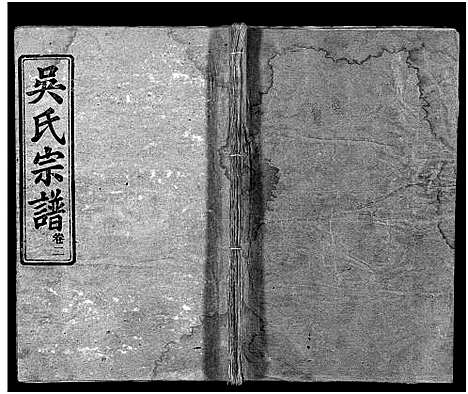 吳氏宗譜 卷二